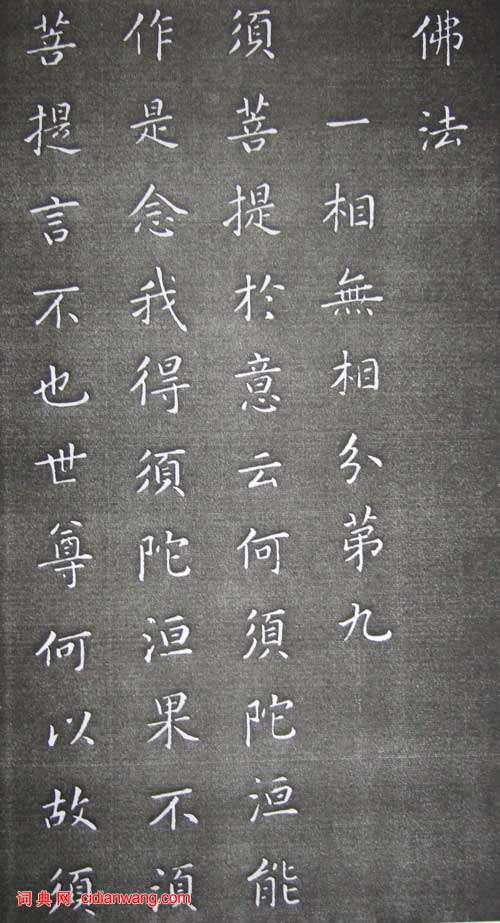 佛法
一相無相分第九
須菩提於意云何須陀洹能
作是念我得須陀洹果不須
菩提言不也世尊何以故須
词典网:cidianwang.com